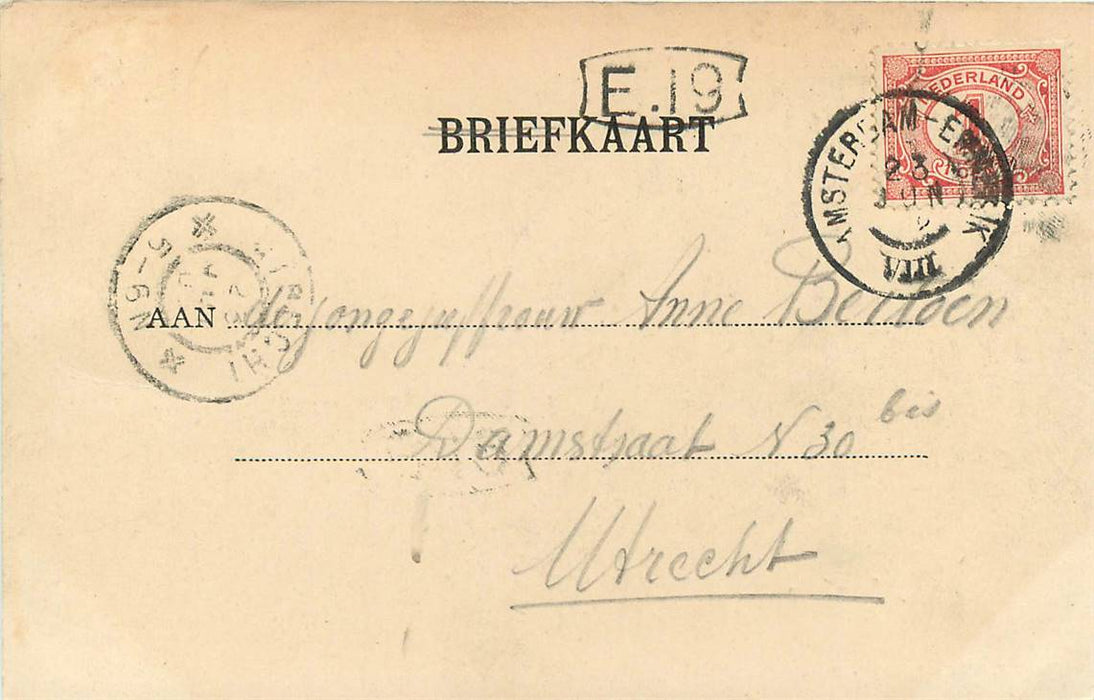 E.19
BRIEFKAART
NEDERLAND
1
AMSTERDAM-EMMERIK
23 JUN
VIII
5-6N
AAN de jongejuffrouw Anne
Damstraat N 30 bis
Utrecht